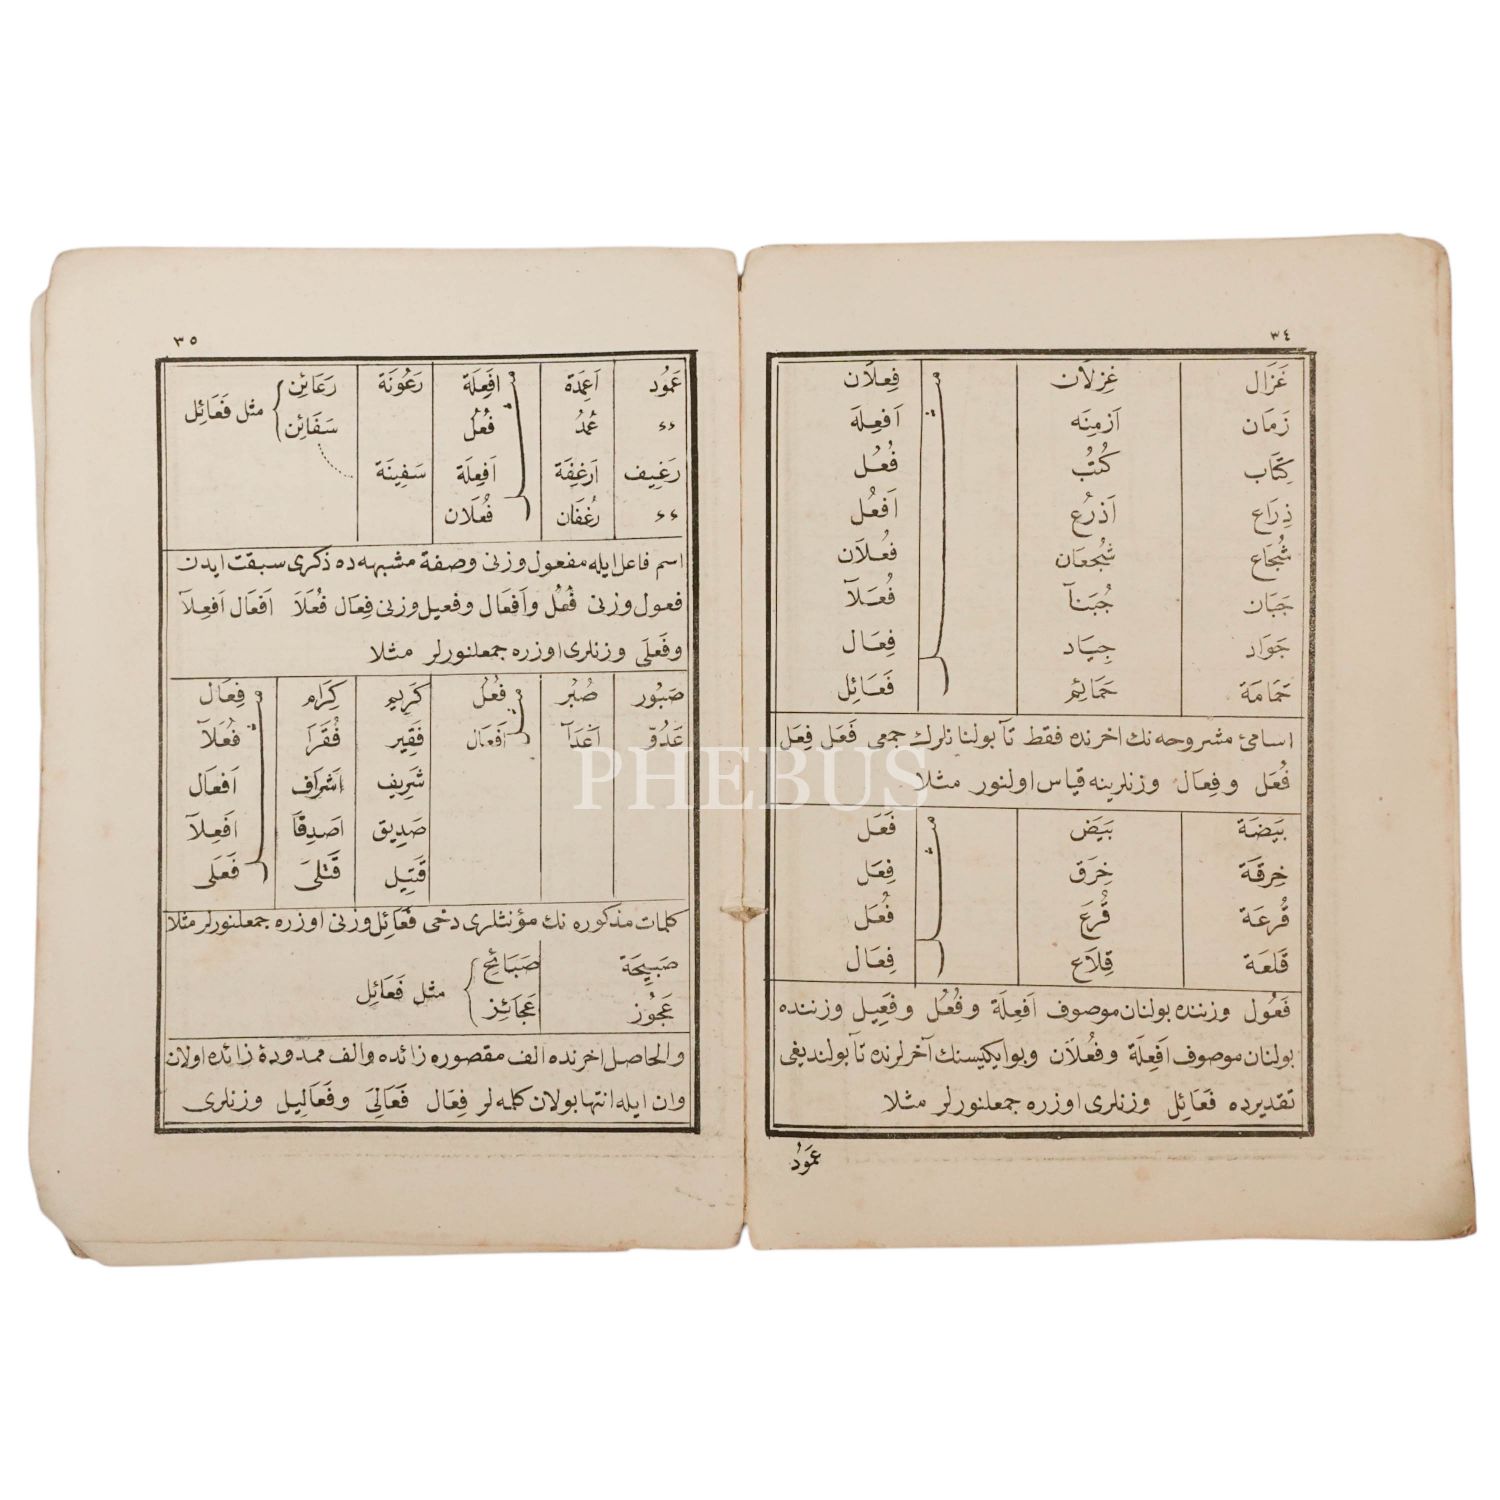 ٣٤
غَزَال غِزْلَان مثل فِعلَان
زَمَان اَزمِنَه اَفعِلَه
كِتَاب كُتُب فُعُل
ذِرَاع اَذرُع اَفعُل
شُجَاع شُجعَان فُعلَان
جَبَان جُبَنآ فُعَلآ
جَوَاد جِيَاد فِعَال
حَمَامَة حَمَائِم فَعَائِل
اسامئ مشروحه نك اخرنده فقط تآ بولنانلرك جمعى فَعَل فِعَل
فُعَل و فِعَال وزنلرينه قياس اولنور مثلا
بَيضَة بَيَض مثل فَعَل
خِرقَة خِرَق فِعَل
قُرعَة قُرَع فُعَل
قَلعَة قِلَاع فِعَال
فَعُول وزننده بولنان موصوف اَفعِلَة و فُعُل و فَعِيل وزننده
بولنان موصوف اَفعِلَة و فُعلَان و بوايكيسنك آخرلرنده تآ بولنديغى
تقديرده فَعَائِل وزنلرى اوزره جمعلنورلر مثلا
عَمُود
٣٥
عَمُود اَعمِدَة مثل اَفعِلَة رَعُونَة رَعَائِن مثل فَعَائِل
٫٫ عُمُد فُعُل سَفَائِن
رَغِيف اَرغِفَة اَفعِلَة سَفِينَة
٫٫ رُغفَان فُعلَان
اسم فاعل ايله مفعول وزنى وصفة مشبهه ده ذكرى سبقت ايدن
فعول وزنى فُعُل و اَفعَال و فعيل وزنى فِعَال فُعَلَا اَفعَال اَفعِلآ
و فَعلَى وزنلرى اوزره جمعلنورلر مثلا
صَبُور صُبُر مثل فُعُل كَرِيم كِرَام مثل فِعَال
عَدُوّ اَعدَآ اَفعَال فَقِير فُقَرَا فُعَلآ
شَرِيف اشرَاف اَفعَال
صَدِيق اَصدِقَا اَفعِلآ
قَتِيل قَتلَى فَعلَى
كلمات مذكوره نك مؤنثلرى دخى فَعَائِل وزنى اوزره جمعلنورلر مثلا
صَبِيحَة صَبَائِح مثل فَعَائِل
عَجُوز عَجَائِز
والحاصل اخرنده الف مقصوره زائده والف ممدودۀ زائده اولان
وان ايله انتها بولان كلمه لر فِعَال فَعَالَى و فَعَالِيل وزنلرى
PHEBUS